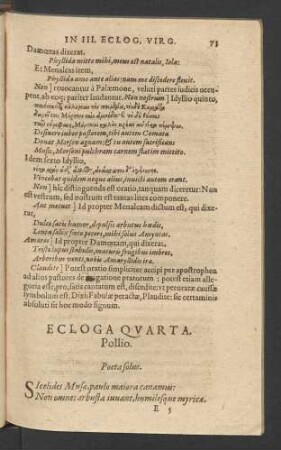 IN III. ECLOG. VIRG. 73
Damœtas dixerat.
Phyllida mitte mihi, meus est natalis, Iola:
Et Menalcas item,
Phyllida amo ante alias: nam me discedere fleuit.
Non] reuocantur à Palæmone, veluti partes iudicis occu-
pent, ab eoq; pariter laudantur. Non nostrum] Idyllio quinto,
Desine
Donat Morson agnam: & tu autem sacrificans
Musis, Morsoni pulchram carnem statim mittito.
Idem sexto Idyllio,
Vincebat quidem neque alius, inuicti autem erant.
Non] hîc distinguenda est oratio, tanquam diceretur: Non
est vestrum, sed nostrum est tantas lites componere.
Aut metuet] Id propter Menalcam dictum est, qui dixe-
rat,
Dulce satis humor, depulsis arbutus hœdis,
Lenta salix fœto pecori, mihi solus Amyntas.
Amaros] Id propter Damœtam, qui dixerat,
Triste lupus stabulis, maturis frugibus imbres,
Arboribus venti, nobis Amaryllidis iræ.
Claudite] Potest oratio simpliciter accipi per apostrophen
ad alios pastores de irrigatione pratorum: potest etiam alle-
goria esse, pro, satis cantatum est,
ium boni est. Dixit Fabulæ peractæ, Plaudite: sic certaminis
absoluti sit hoc modo signum.
ECLOGA QVARTA.
Pollio.
Poeta solus.
Sicelides Musæ, paulò maiora canamus:
Non omnes arbusta iuuant, humilesque myricæ.
E 5